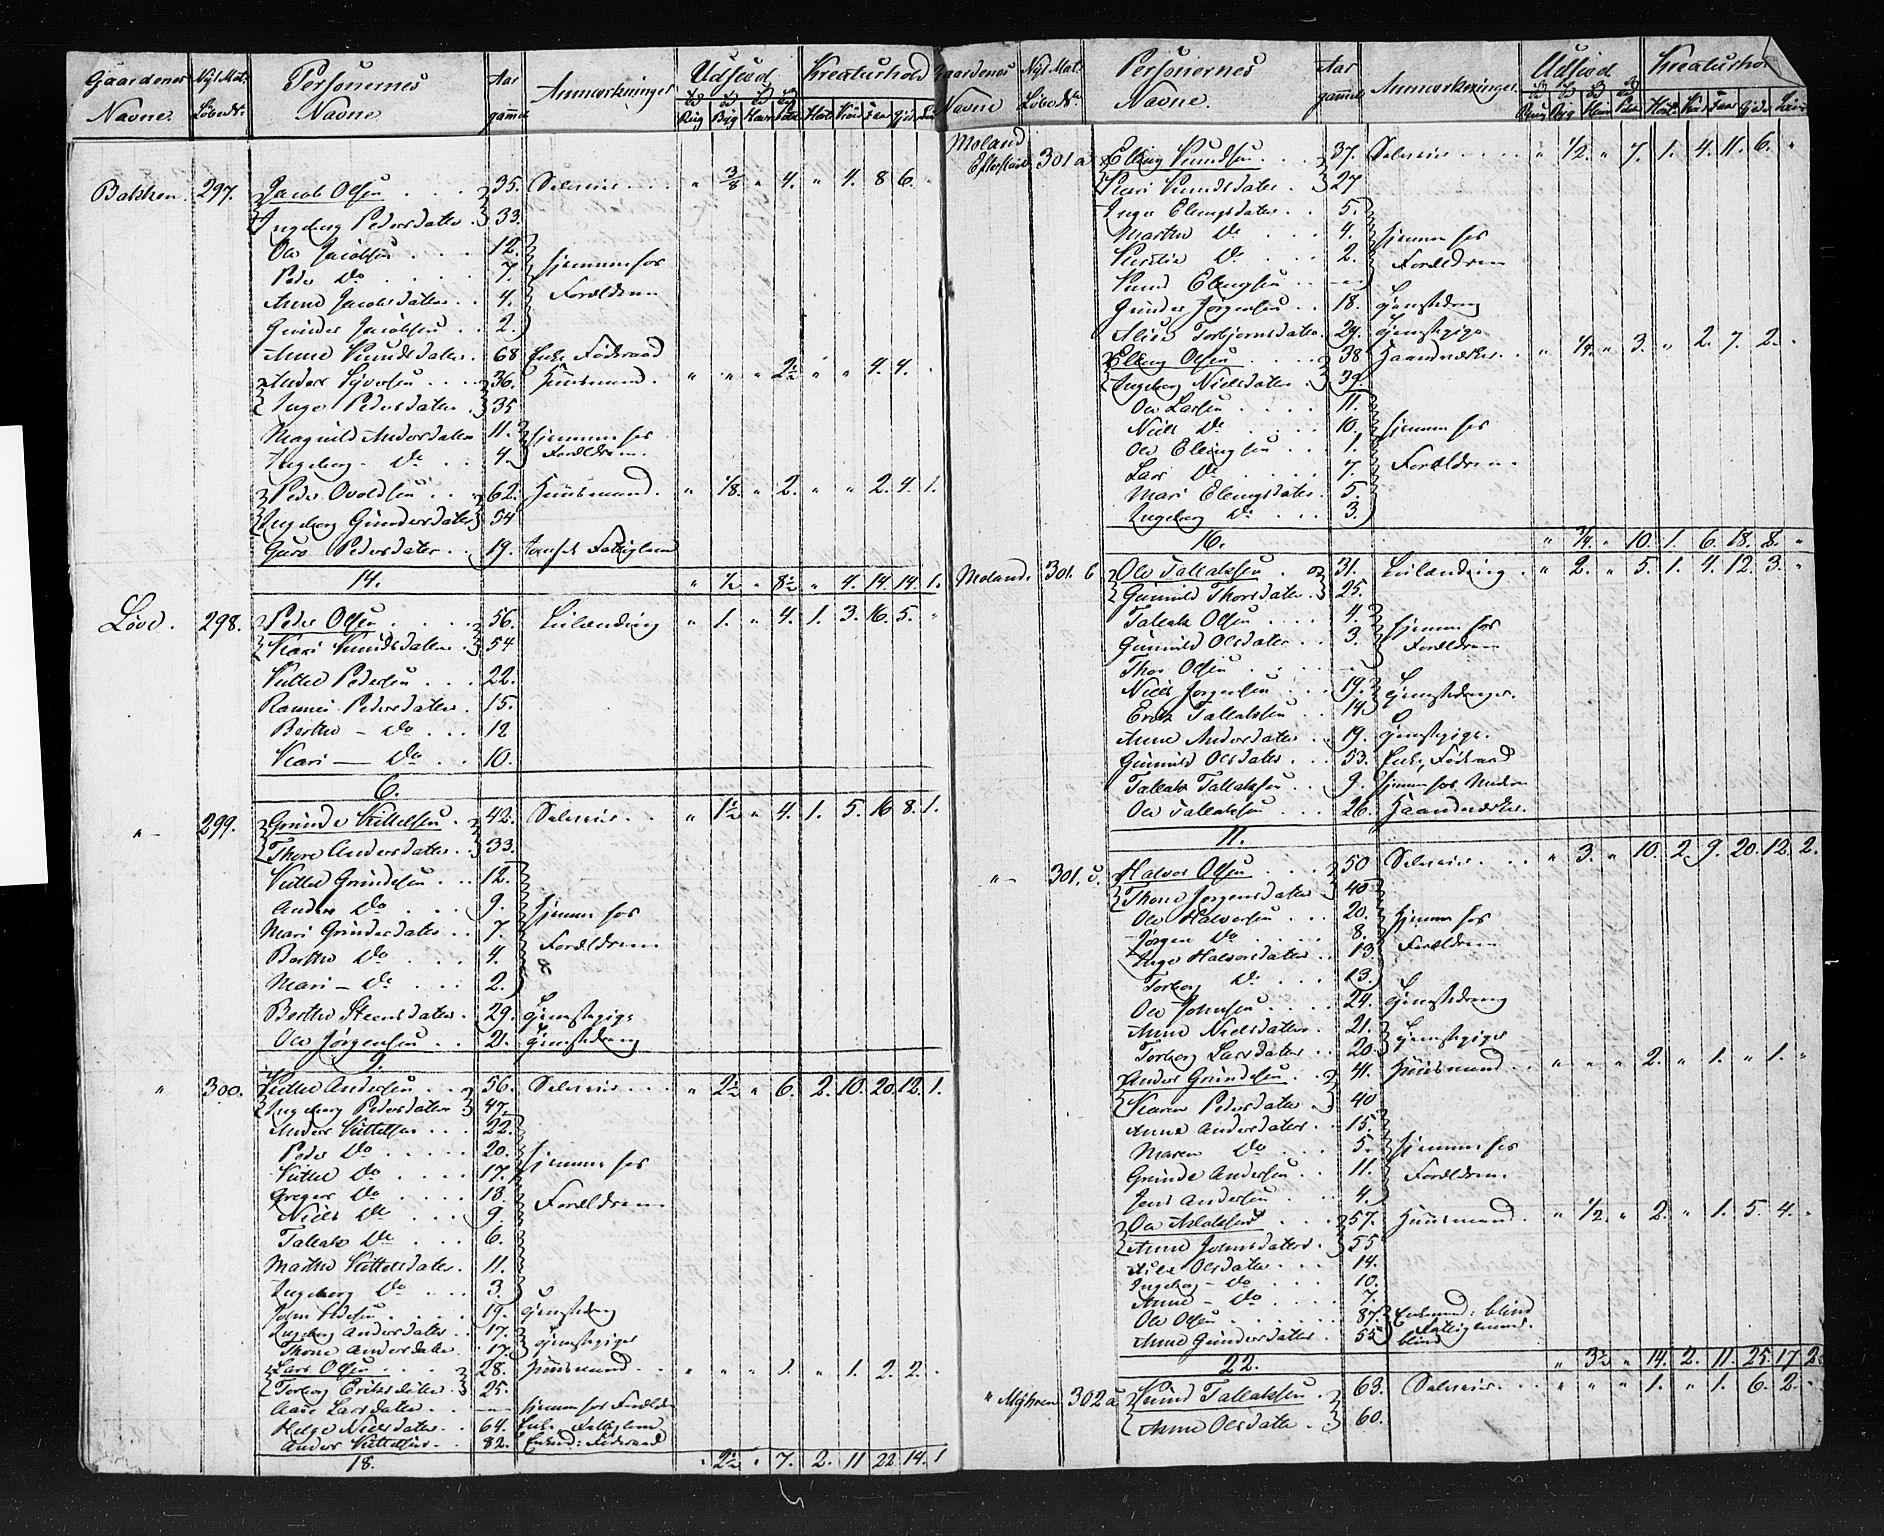 Gaardenes Navne. Nyt Mat: Løbe No Personernes Navne Aar gammel Anmærkninger Udsæd Kreaturhold
Rug Byg Havre Poteter Heste Kiør Faar Gjeder Sviin
Bakken. 297. Jacob Olsen 35. Selveier " 3/8 " 4. " 4. 8 6. "
Ingeborg Pedersdatter 33.
Ole Jacobsen 12. hjemme hos
Peder Do 7.
Anne Jacobsdatter 4. Forældrene
Gunder Jacobsen 2.
Anne Knudsdatter 68 Enke Føderaad
Anders Syversen 36. Huusmand. " " " 2½ " " 4. 4. "
Inge Pedersdatter 35
Magnild Andersdatter 11. hjemme hos
Ingeborg - Do 4. Forældrene.
Peder Ovoldsen 62. Huusmand. " 1/8. " 2. " " 2. 4. 1.
Ingeborg Gundersdatter 54
Guro Pedersdatter 19. Fattiglem
14. " ½ " 8½ " 4. 14. 14. 1.
Løve. 298. Peder Olsen 56. Leilænding " 1. " 4. 1. 3. 16. 5. "
Kari Knudsdatter 54
Kittel Pedersen 22.
Rannei Pedersdatter 15.
Berthe - Do 12
Kari - Do 10.
6.
" - 299. Grunde Kittelsen 42. Selveier " 1½ " 4. 1. 5. 16 8. 1.
Thore Andersdatter 33.
Kittel Grundesen 12.
Anders Do 9. hjemme hos
Mari Grundesdatter 7.
Berthe Do 4. Forældrene
Mari - Do 2.
Berthe Steensdatter 29. Tjenestepige
Ole Jørgensen 21. Tjenestedreng
9.
" 300. Kittel Andersen 56. Selveier " 2½ " 6. 2. 10. 20. 12. 1.
Ingeborg Pedersdatter 47.
Anders Kittelsen 22.
Peder Do 20.
Kittel Do 17. hjemme hos
Greger Do 18.
Niels Do 9 Forældrene
Tallak Do 6.
Marthe Kittelsdatter 11.
Ingeborg Do 3.
John 19. Tjenestedreng
Ingeborg Andersdatter 17. Tjenestepiger
Thone Andersdatter 17.
Lars Olsen 28. Huusmand " " " 1. " 1. 2. 2. "
Torborg Eriksdatter 25.
Aase Larsdatter - hjemme hos Forældre
Helge Nielsdatter 64. Enke Fattiglem
Anders Kittelsen 82. Enkemd: Føderaad
18. " 2½ " 7. 2. 11 22 14. 1
Gaardenes Navne Nyt Mat: Løbe No Personernes Navne. Aar gammel Anmærkninger. Udsæd Kreaturhold
Rug Byg Havre Poteter Heste Kiør Faar Gjeder Sviin
Moland 301 a Elling Knudsen 37. Selveier " ½. " 7. 1. 4. 11. 6. "
Kari Knudsdatter 27
Inge Elingsdatter 5.
Marthe Do 4. hjemme hos
Do 2. Forældrene
Knud Elingsen -
Gunder Jørgensen 18. Tjenestedreng
Alice Torbjørnsdatter 29. Tjenestepige
Elling Olsen 38 Haandværker " ¼ " 3. " 2. 7. 2. "
Ingeborg Nielsdatter 39.
Ole Larsen 11.
Niels Do 10. hjemme hos
Ole Elingsen 1.
Lars Do 7. Forældrene.
Mari Elingsdatter 5.
Ingeborg Do 3.
16. " ¾. " 10. 1. 6. 18. 8. "
Moland. 301. b Ole Tallaksen 31. Leilænding " 2. " 5. 1. 4. 12. 3. "
Gunnild Thorsdatter 25.
Tallak Olsen 4. hjemme hos
Gunnild Olsdatter 3. Forældrene
Thor Olsen -
Niels Jørgensen 19. Tjenestedrenger.
Erik Tallaksen 14
Anne Andersdatter 19. Tjenestepige.
Gunnild Olsdatter 53. Enke, Føderaad
Tallak Tallaksen 9. hjemme hos Moderen
Ole Tallaksen 26. Haandværker.
11.
" - 301. c. Halvor Olsen 50 Selveier " 3. " 10. 2. 9. 20. 12. 2.
Thone Jørgensdatter 40
Ole Halvorsen 20. hjemme hos
Jørgen Do 8.
Inge Halvorsdatter 13. Forældrene
Torborg Do 13.
Ole Johnsen 24. Tjenestedreng
Anne Nielsdatter 21. Tjenestepiger
Torborg Larsdatter 20.
Anders Grundesen 41. Huusmand " " " 2. " 1. " 1. "
Karen Pedersdatter 40
Anne Andersdatter 15.
Maren Do 5. hjemme hos
Grunde Andersen 11. Forældrene.
Jens Andersen 4.
Ole Aslaksen 57. Huusmand. " ½. " 2. " 1. 5. 4. "
Anne Johnsdatter 55
Olsdatter 14.
Ingeborg - Do 10.
Anne - Do 7.
Ole Olsen 87. Enkemd: blind
Anne Gundersdatter 55 Fattiglemmer blind
22. " 3½ " 14. 2. 11. 25. 17. 2.
" 302 a Knud Tallaksen 63. Selveier " " " 1. " 1. 6. 2. "
Anne Olsdatter 60.